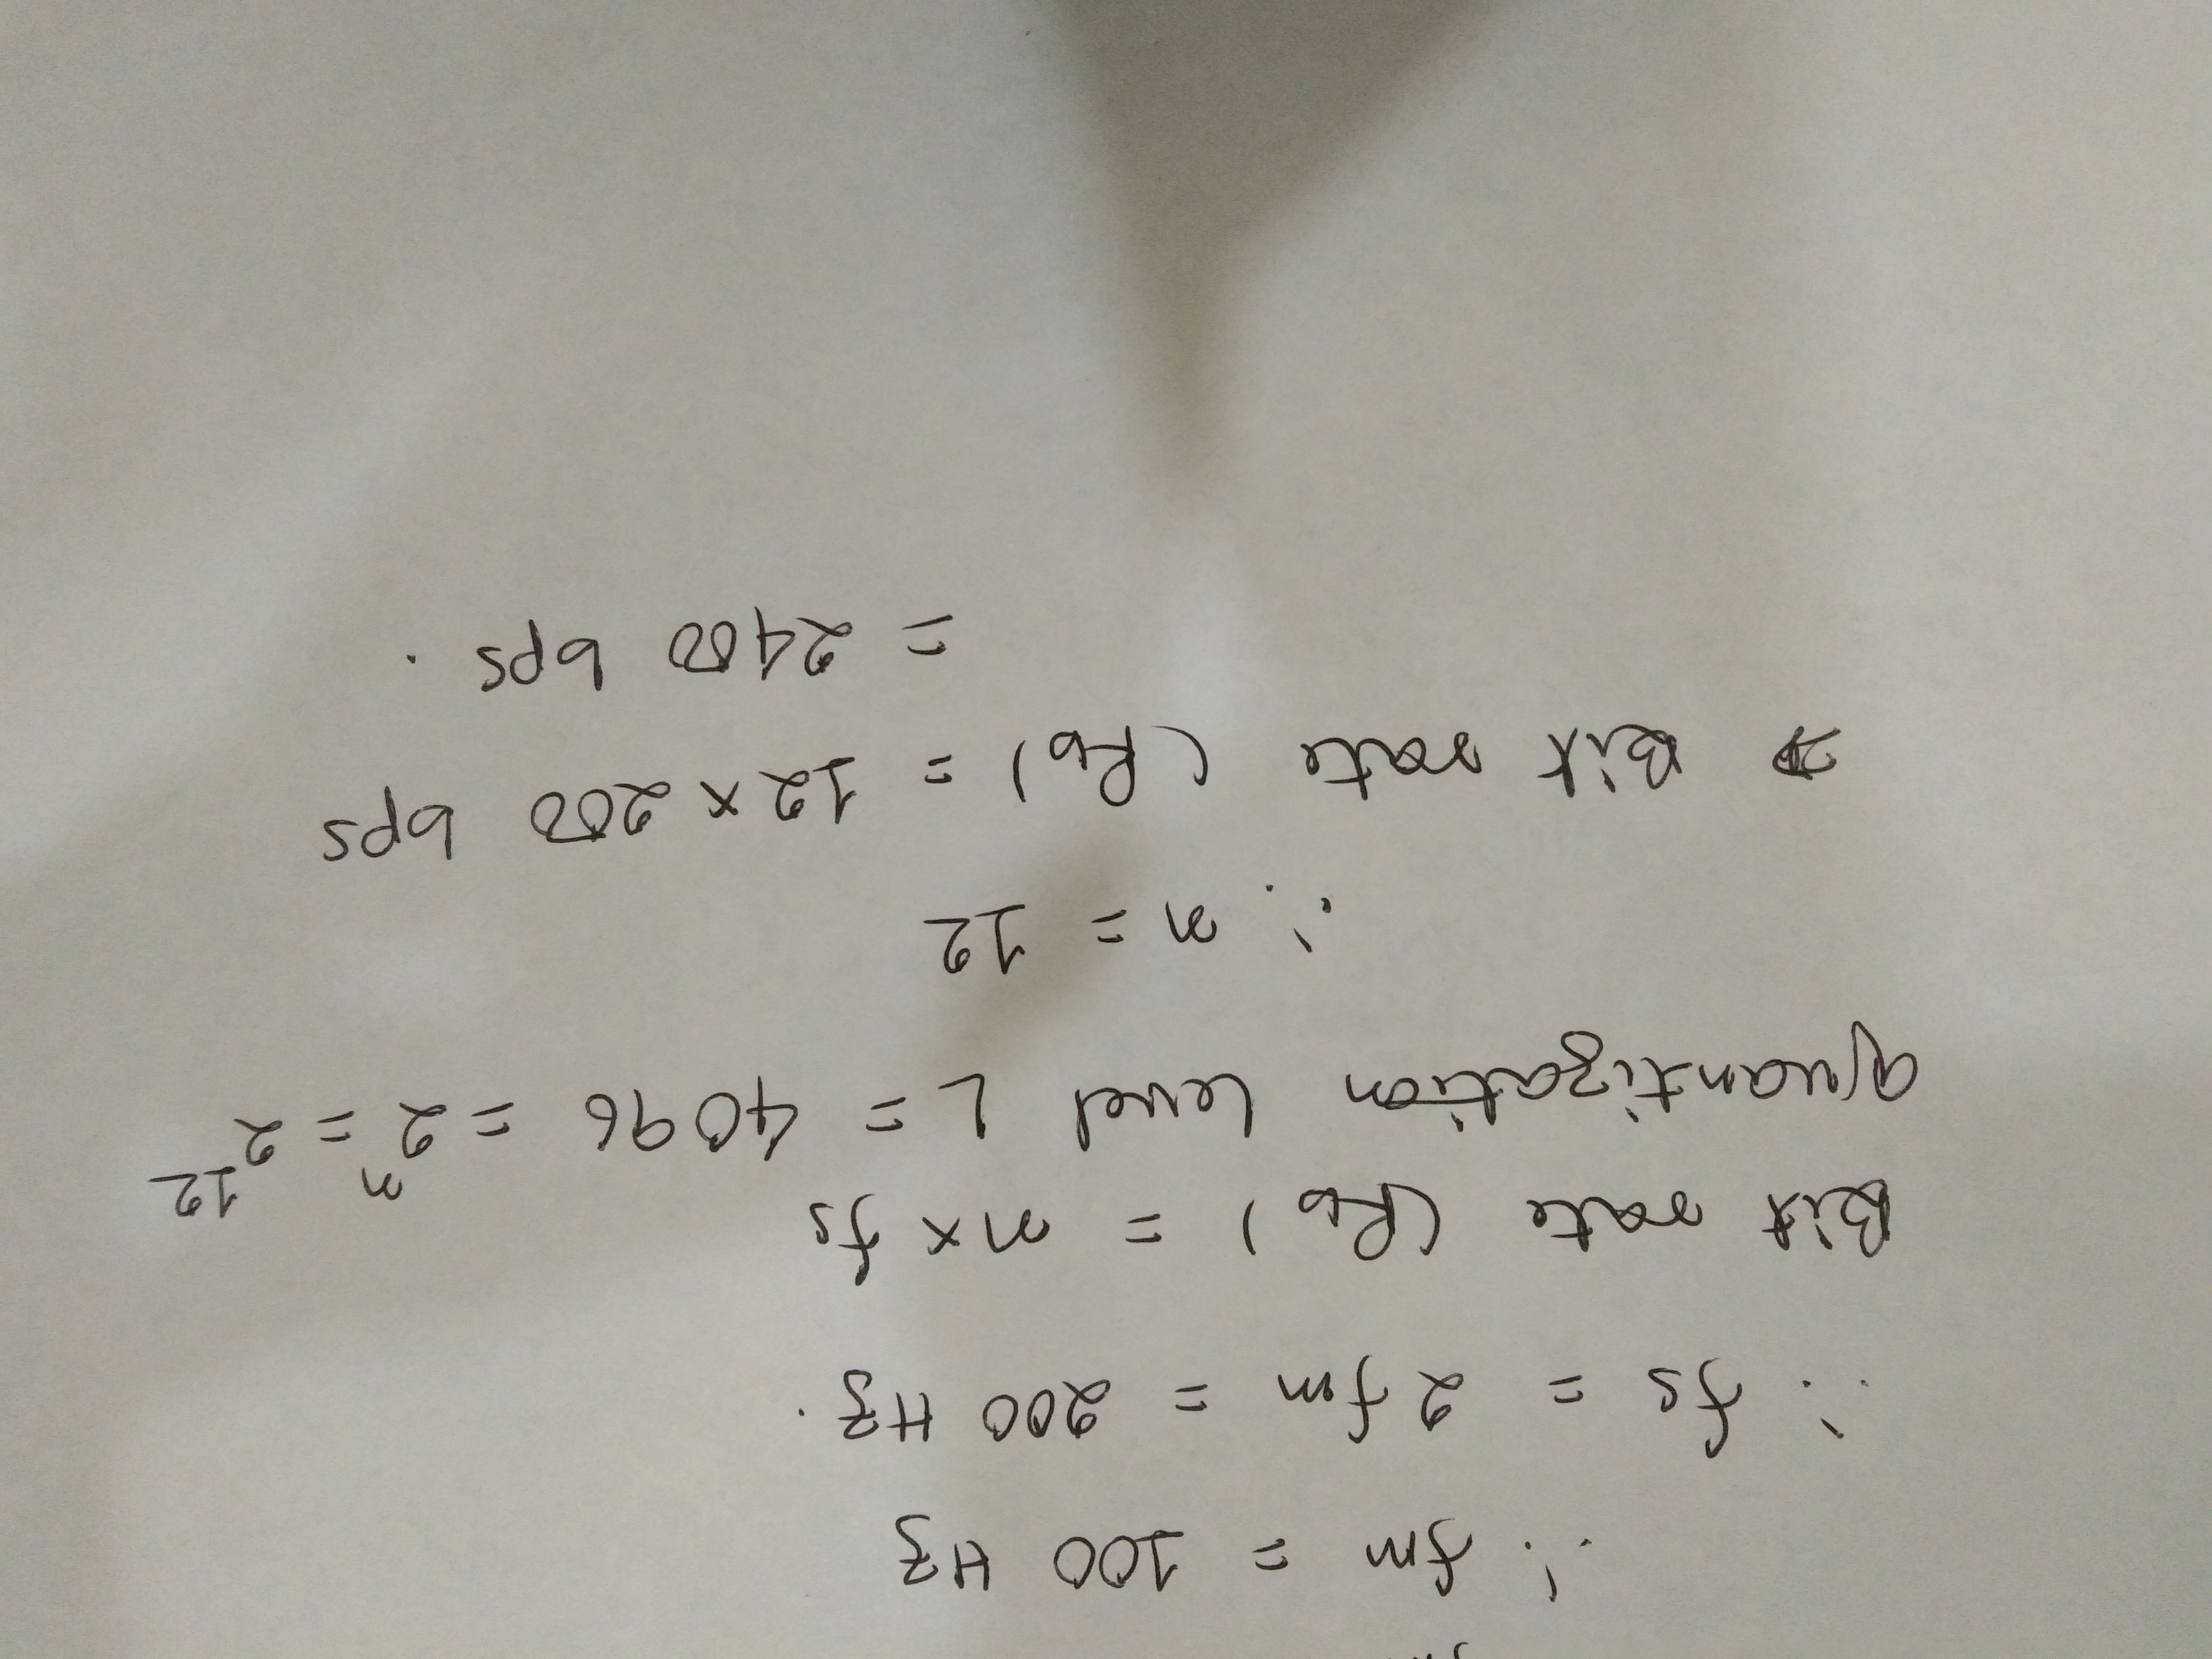 ∴ fm = 100 Hz
∴ fs = 2 fm = 200 Hz.
Bit rate (Rb) = n x fs
quantization level L = 4096 = 2^n = 2^12
∴ n = 12
⇒ Bit rate (Rb) = 12 x 200 bps
= 2400 bps.